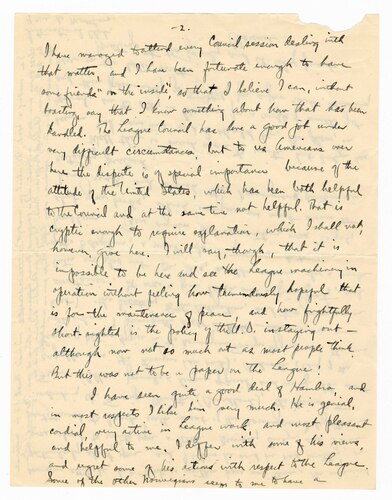 -2-
I have managed to attend every Council session dealing with
that matter, and I have been fortunate enough to have
some friends "on the inside", so that I believe I can, without
boasting, say that I know something about how that has been
handled. The League Council has done a good job under
very difficult circumstances, but to us Americans over
here the dispute is of special importance because of the
attitude of the United States, which has been both helpful
to the Council and at the same time not helpful. That is
cryptic enough to require explanation, which I shall not,
however, give here. I will say, though, that it is
impossible to be here and see the League machinery in
operation without feeling how tremendously hopeful that
is for the maintenance of peace, and how frightfully
short-sighted is the policy of the U.S. in staying out —
although now not so much out as most people think.
But this was not to be a paper on the League!
I have seen quite a good deal of Hambro, and
in most respects I like him very much. He is genial,
cordial, very active in League work, and most pleasant
and helpful to me. I differ with some of his views,
and regret some of his actions with respect to the League.
Some of the other Norwegians seem to me to have a